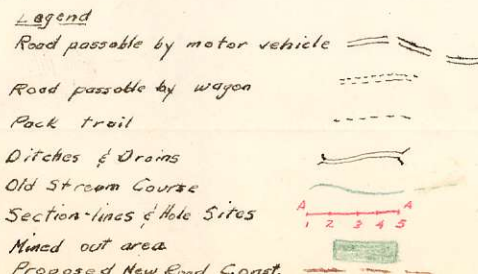 Legend
Road passable by motor vehicle
Road passable by wagon
Pack trail
Ditches & Drains
Old Stream Course
Section-lines & Hole Sites
A A
1 2 3 4 5
Mined out area
Proposed New Road Const.